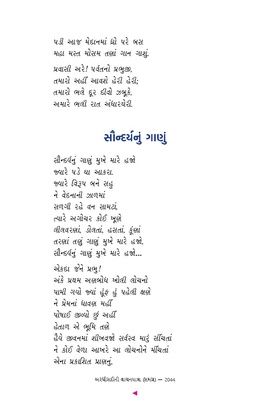 પડી આજ મેદાનમાં ધો પરે બસ
મહા મસ્ત મોસમ તણાં ગાન ગાશું.
પ્રવાસી અરે! પર્વતનો પ્રભુજી,
તમારો અહીં આવશે હેરી હેરી;
તમારો ભલે દૂર દીવો ઝબૂકે,
અમારે ભલી રાત અંધારઘેરી.
સૌન્દર્યનું ગાણું
સૌન્દર્યનું ગાણું મુખે મારે હજો
જ્યારે પડે ઘા આકરા.
જ્યારે વિરૂપ બને સહુ
ને વેદનાની ઝાળમાં
સળગી રહે વન સામટાં,
ત્યારે અગોચર કોઈ ખૂણે
લીલવરણાં, ડોલતાં, હસતાં, કૂંણાં
તરણાં તણું ગાણું મુખે મારે હજો,
સૌન્દર્યનું ગાણું મુખે મારે હજો...
એકદા જેને પ્રભુ!
અંકે પ્રથમ અણબોધ ખોલી લોચનો
પામી ગયો જ્યાં હૂંફ હું પહેલી ક્ષણે
ને પ્રેમનાં ધાવણ મહીં
પોષાઈ જીવ્યો છું અહીં
હેતાળ એ ભૂમિ તણે
હૈયે જીવનમાં શીખવજો સર્વસ્વ મારું સીંચતાં
ને કોઈ વેળા આખરે આ લોચનોને મીંચતાં
એના પ્રકાશિત પ્રાણનું.